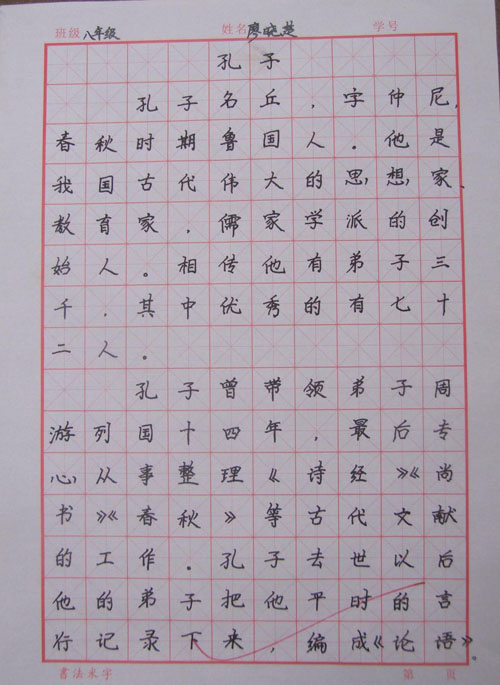 班级 八年级 姓名 廖晓楚 学号
孔子
孔子名丘，字仲尼，
春秋时期鲁国人．他是
我国古代伟大的思想家、
教育家，儒家学派的创
始人。相传他有弟子三
千，其中优秀的有七十
二人。
孔子曾带领弟子周
游列国十四年，最后专
心从事整理《诗经》《尚
书》《春秋》等古代文献
的工作。孔子去世以后
他的弟子把他平时的言
行记录下来，编成《论语》
書法米字 第 页